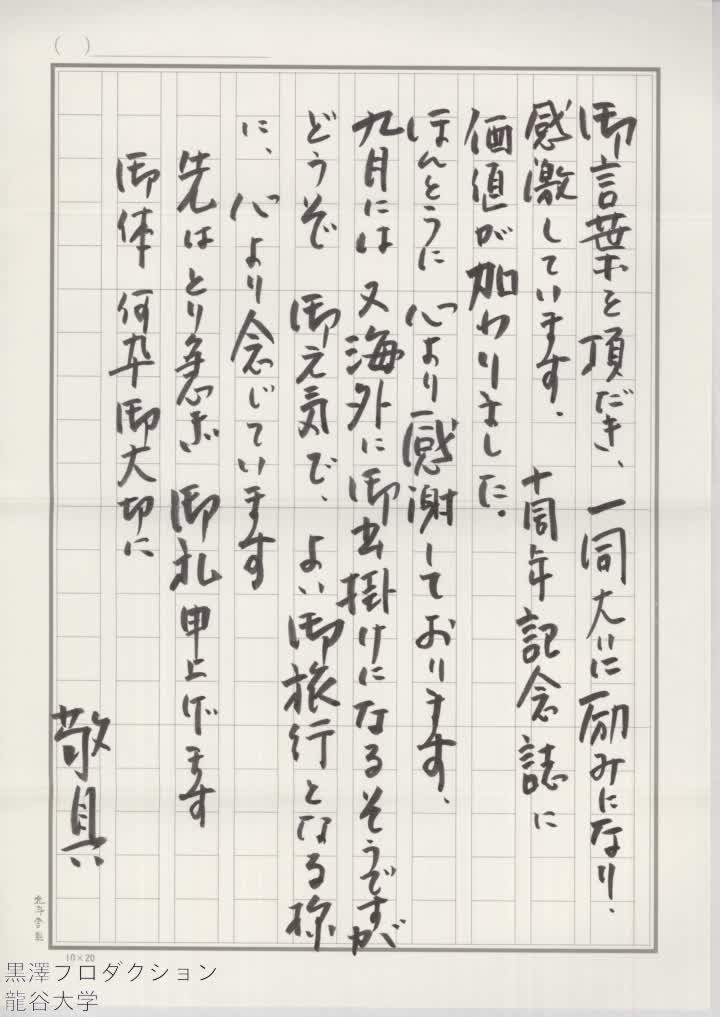 御言葉を頂だき、一同大いに励みになり、
感激しています。十周年記念誌に
価値が加わりました。
ほんとうに心より感謝しております、
九月には又海外に御出掛けになるそうですが
どうぞ御元気で、よい御旅行となる様
に、心より念じています
先はとり急ぎ御礼申上げます
御体何卒御大切に
敬具
10×20
黒澤プロダクション
龍谷大学